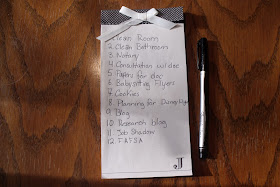 1. Clean Room
2. Clean Bathroom
3. Notary
4. Consultation w/ doc
5. Papers for doc
6. Babysitting Flyers
7. Cookies
8. Planning for
9. Blog
10. Research blog
11. Job Shadow
12. FAFSA
J